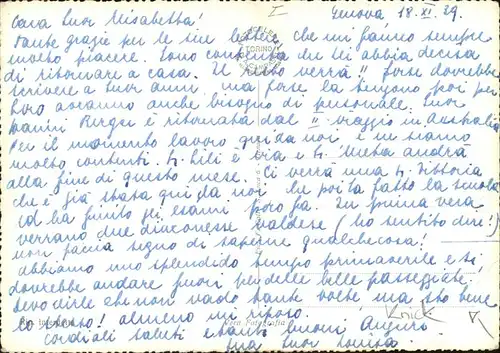 Cara Suor Elisabetta! Genova 18. XI. 59.
I
Tante grazie per le sue lettere, che mi fanno sempre
TORINO
molto piacere. Sono contenta che Lei abbia decisa
di ritornare a casa. Il resto verrà!! forse dovrebbe
scrivere a Suor Anni, ma forse la tengono poi per
loro avranno anche bisogno di personale. Suor
Berger è ritornata dal II viaggio in Australia
Per il momento lavoro qui da noi e ne siamo
molto contenti. Lili è via e andrà
alla fine di questo mese. Ci verrà una Vittoria
che è già stata qui da noi che poi ha fatto la scuola
ed ha finito gli esami poco fa. In primavera
verranno due diaconesse valdese (ho sentito dire!)
non faccia segno di saperne qualchecosa!
abbiamo uno splendido tempo primaverile e si
dovrebbe andare fuori per delle belle passegiate,
devo dirle che non vado tante volte, ma sto bene
lo stesso! almeno mi riposo.
Vera Fotografia
Knick
cordiali saluti e tanti buoni Auguri
sua Suor